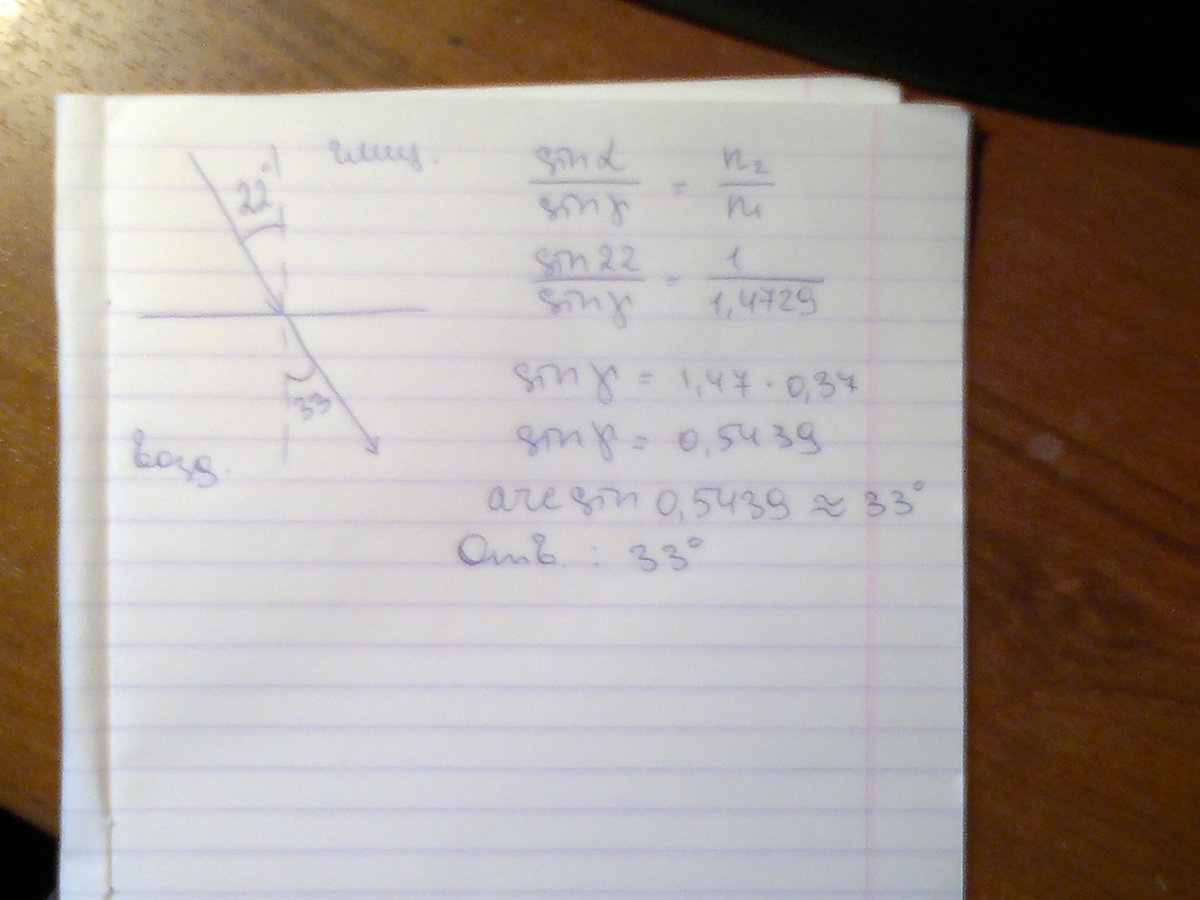 22°
глиц.
sin α / sin γ = n₂ / n₁
sin 22 / sin γ = 1 / 1,4729
33
sin γ = 1,47 · 0,37
sin γ = 0,5439
возд.
arcsin 0,5439 ≈ 33°
Отв. : 33°